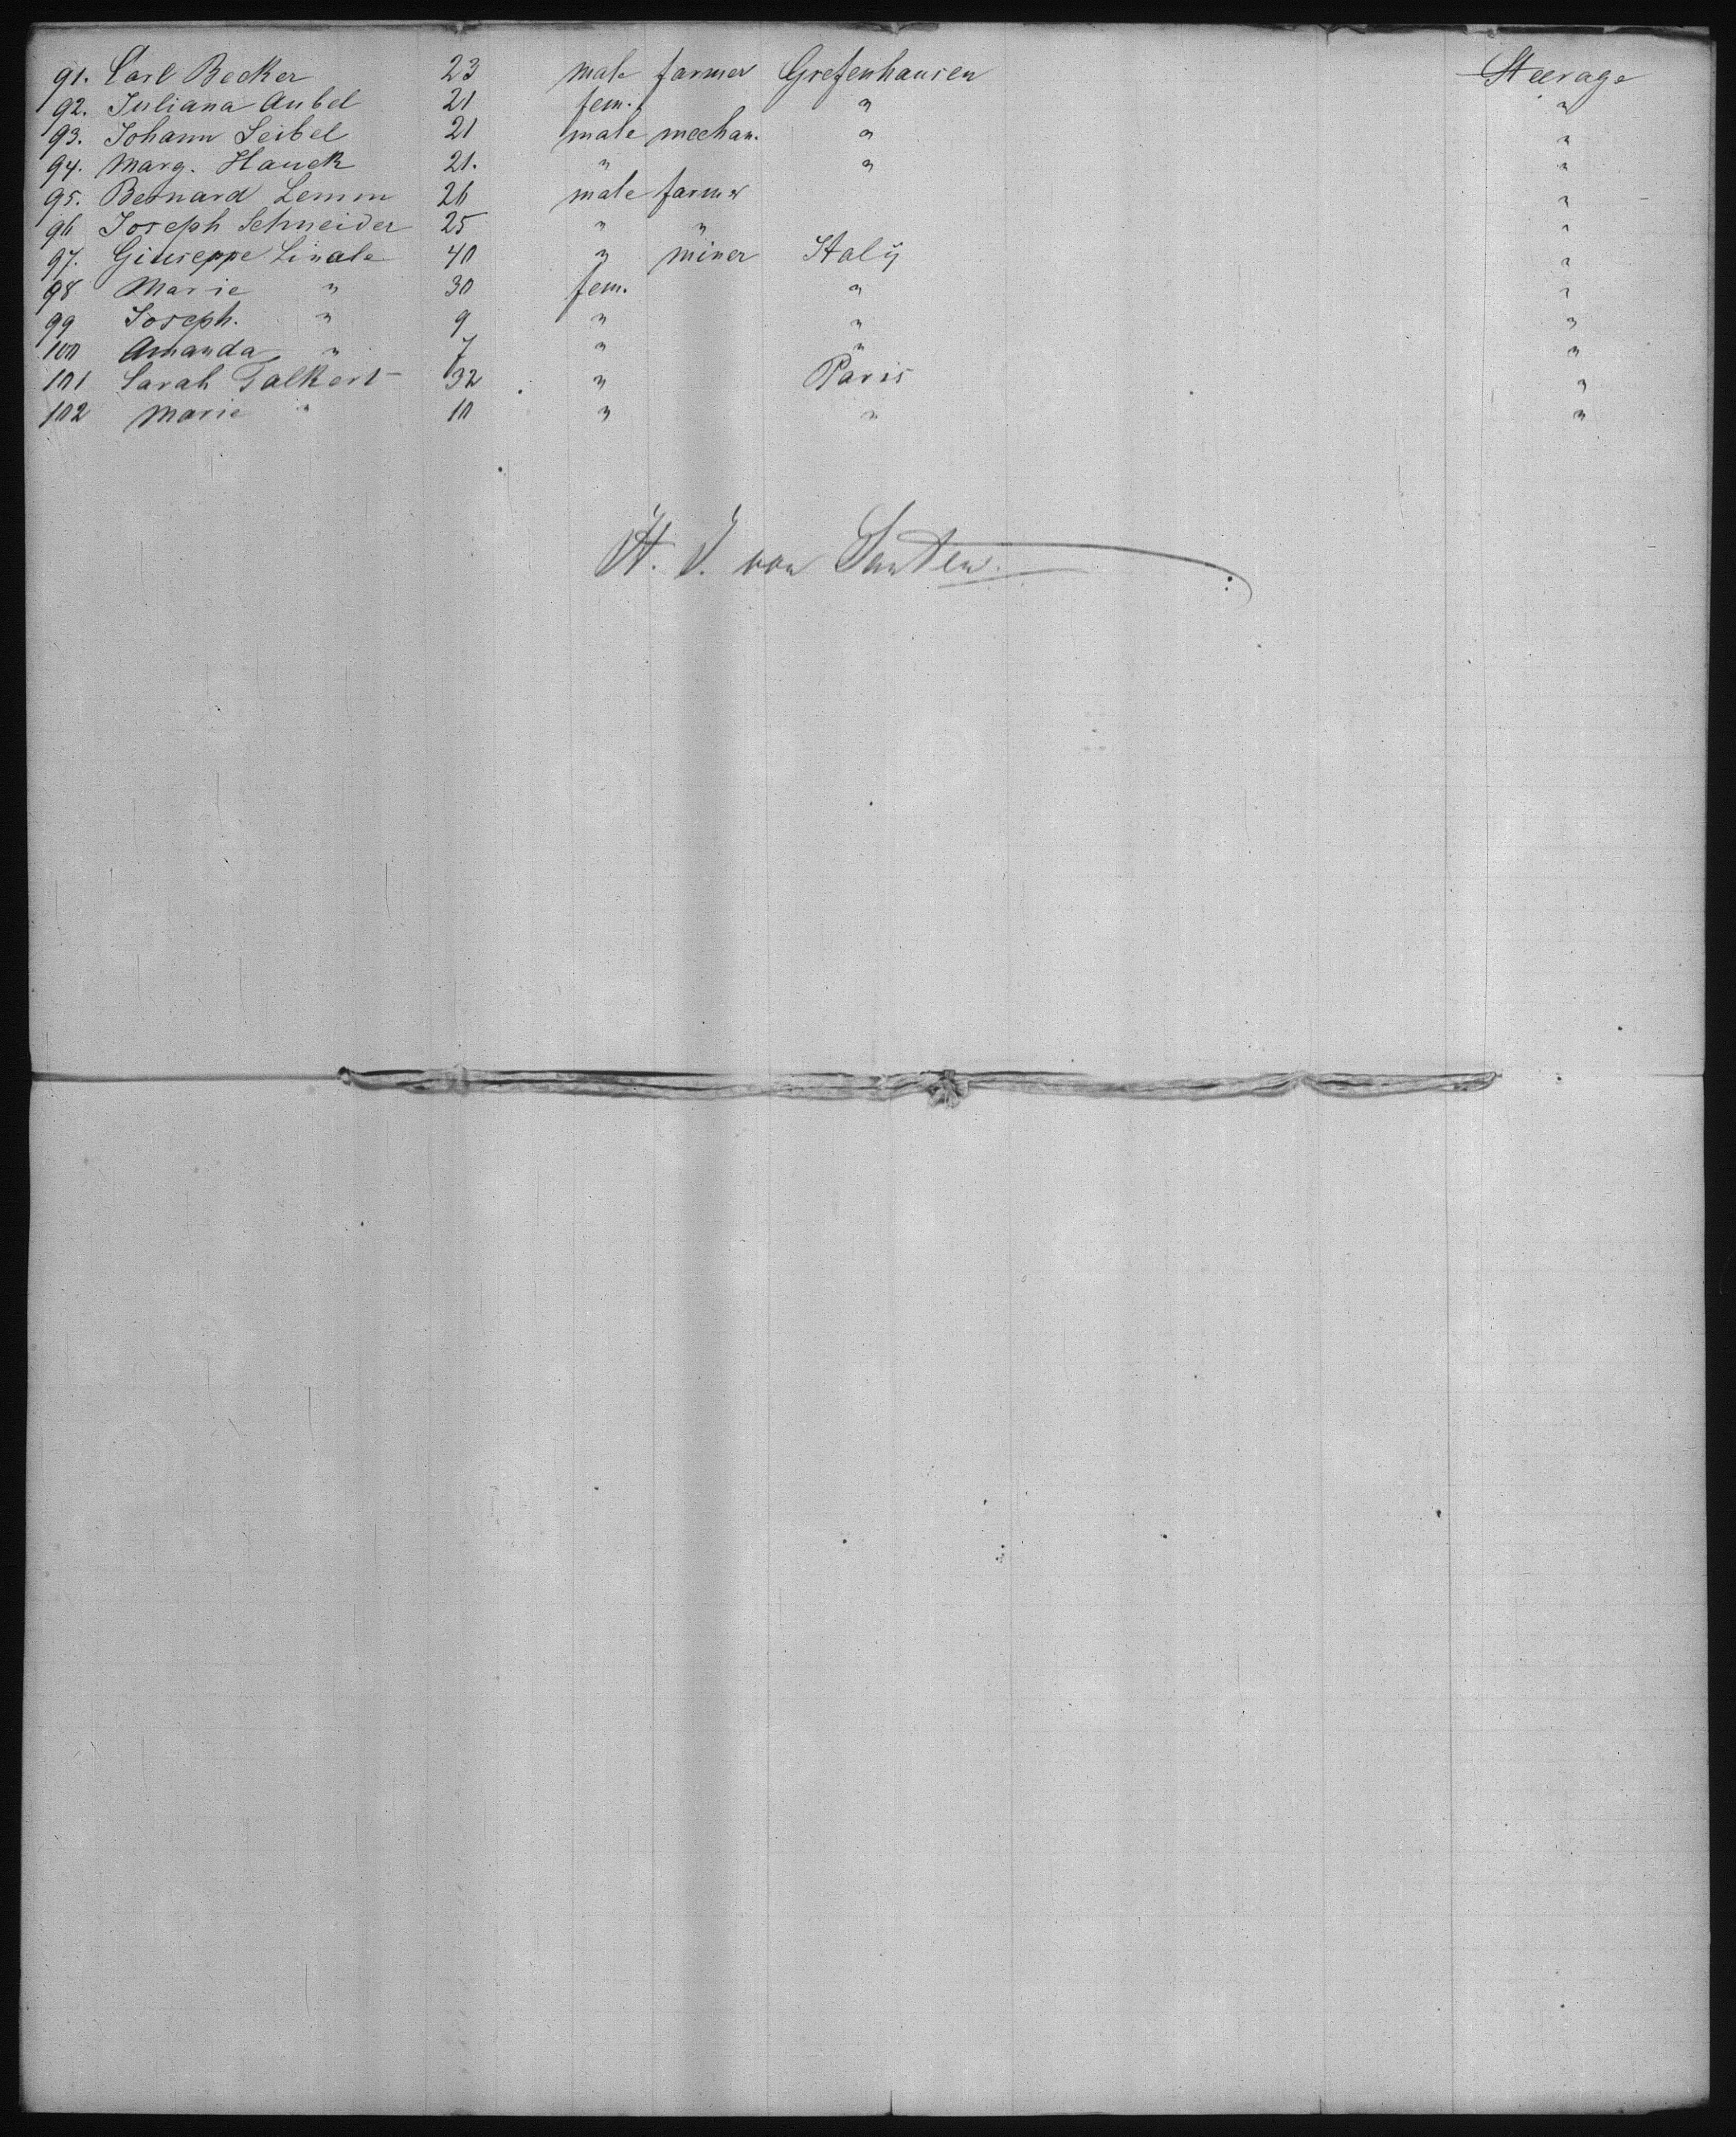 91. Carl Becker 23 male farmer Grefenhausen Steerage
92. Juliana Aubel 21 fem. " "
93. Johann Seibel 21 male mechan. " "
94. Marg. Hauck 21. " " "
95. Bernard Lemm 26 male farmer "
96 Joseph Schneider 25 " " "
97. Giuseppe Linale 40 " miner Italy "
98 Marie " 30 fem. " "
99 Joseph. " 9 " " "
100 Amanda " 7 " " "
101 Sarah Talkert 32 " Paris "
102 Marie " 10 " " "
H. J. von Santen.